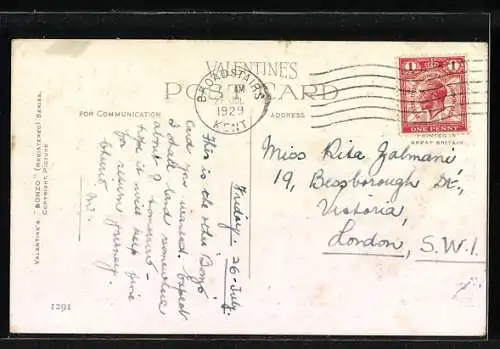 VALENTINE'S
POST CARD
FOR COMMUNICATION
ADDRESS
BROADSTAIRS
AM
1929
KENT
1 1
ONE PENNY
PRINTED IN
GREAT BRITAIN
VALENTINE'S "BONZO" (REGISTERED) SERIES.
COPYRIGHT PICTURE
Friday. 26 July.
This is the other Bonzo
Card you missed. Expect
I shall land somewhere
about 7 tomorrow -
hope it will keep fine
for return journey.
Miss Rita Zalmani
19, Bessborough St,
Victoria,
London, S.W.1.
1291